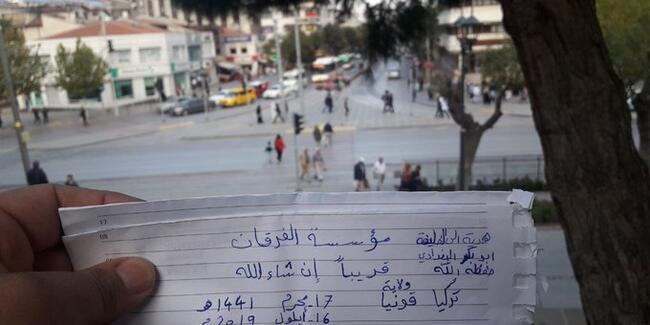 هدية الى الخليفة
ابو بكر البغدادي
حفظه الله
ولاية
تركيا قونيا
مؤسسة الفرقان
قريباً إن شاء الله
17-محرم 1441هـ
16-أيلول 2019م
17
08